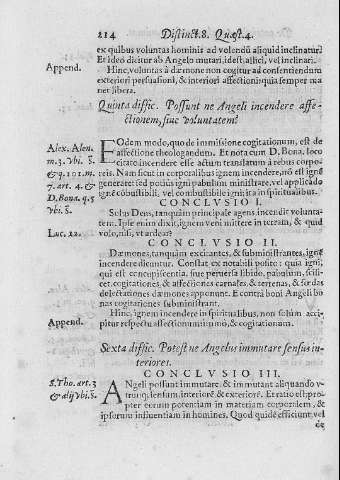 214 Distinct. 8. Quæst. 4.
ex quibus voluntas hominis ad volendū aliquid inclinatur.
Et ideo dicitur ab Angelo mutari, id est allici, vel inclinari.
Append. Hinc, voluntas à dæmone non cogitur ad consentiendum
exteriori persuasioni, & interiori affectioni: quia semper ma
net libera.
Quinta diffic. Possunt ne Angeli incendere affe-
ctionem, siue voluntatem?
Alex. Alen.
m. 3. Vbi. S.
& q. 101. m.
7. art. 4. &
D. Bona. q. 5
Vbi. S.
EOdem modo, quo de immissione cogitationum, est de
affectione theologandum. Et nota cum D. Bona. loco
citato incendere esse actum translatum à rebus corpo-
reis. Nam sicut in corporalibus ignem incendere, nō est ignē
generare: sed potius igni pabulum ministrare, vel applicado
ignē cōbustibili, vel combustibile igni: ita in spiritualibus.
CONCLVSIO I.
Solus Deus, tanquàm principale agens, incendit volunta-
tem. Ipse enim dixit, ignem veni mittere in terram, & quid
Luc. 12. volo, nisi, vt ardeat?
CONCLVSIO II.
Dæmones, tanquàm excitantes, & subministrantes, ignē
incendere dicuntur. Constat ex notabili posito: quia igni,
qui est concupiscentia, siue peruersa libido, pabulum, scili-
cet, cogitationes, & affectiones carnales, & terrenas, & sordas
delectationes dæmones apponunt. E contra boni Angeli bo
nas cogitationes subministrant.
Append. Hinc, ignem incendere in spiritualibus, non solùm acci-
pitur respectu affectionum: immò, & cogitationum.
Sexta diffic. Potest ne Angelus immutare sensus in-
teriores.
CONCLVSIO III.
S. Tho. art. 3
& alij Vbi. S.
ANgeli possunt immutare, & immutant aliquando v-
trunq; sensum, interiorē & exteriorē. Et ratio est: pro-
pter eorum potentiam in materiam corporalem, &
ipsorum influentiam in homines. Quod quidē efficiunt vel
de